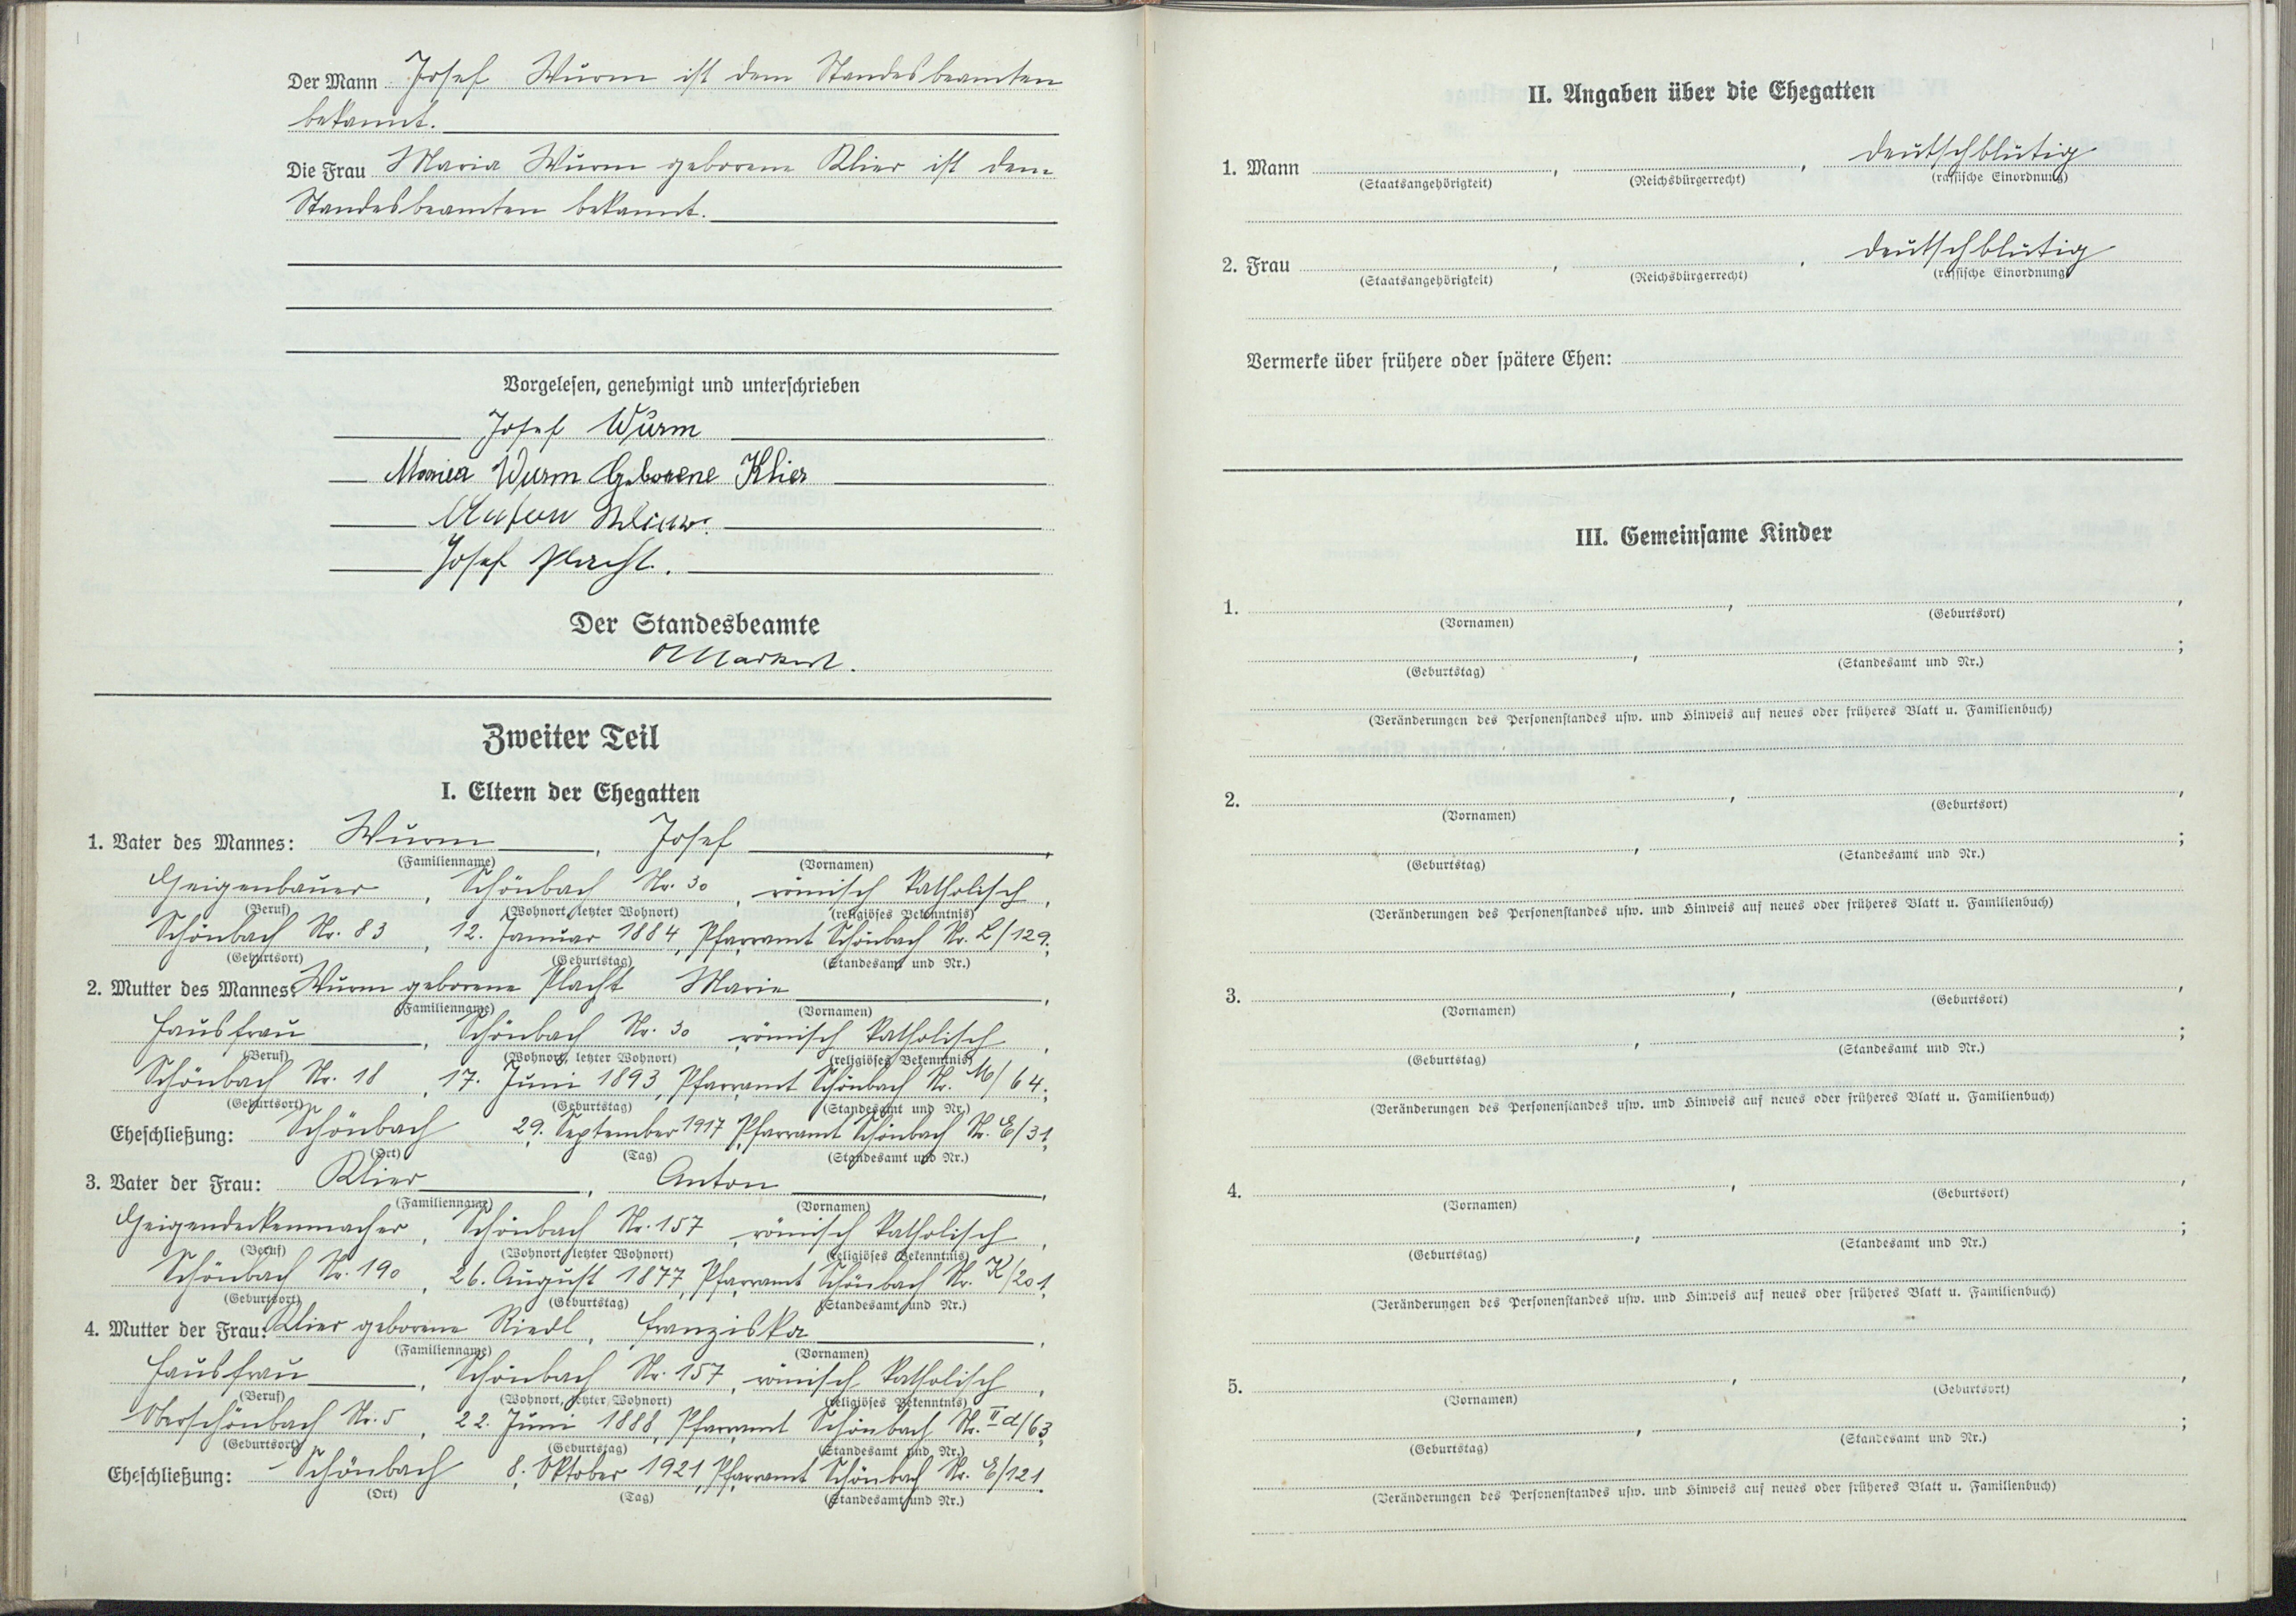 Der Mann Josef Wurm ist dem Standesbeamten
bekannt.
Die Frau Maria Wurm geborene Klier ist dem
Standesbeamten bekannt.
Vorgelesen, genehmigt und unterschrieben
Josef Wurm
Maria Wurm Geborene Klier
Anton
Josef Placht.
Der Standesbeamte
Zweiter Teil
I. Eltern der Ehegatten
1. Vater des Mannes: Wurm, Josef,
(Familienname) (Vornamen)
Geigenbauer, Schönbach Nr. 30, römisch katholisch,
(Beruf) (Wohnort, letzter Wohnort) (religiöses Bekenntnis)
Schönbach Nr. 83, 12. Januar 1884, Pfarramt Schönbach Nr. L/129;
(Geburtsort) (Geburtstag) (Standesamt und Nr.)
2. Mutter des Mannes: Wurm geborene Placht Marie,
(Familienname) (Vornamen)
Hausfrau, Schönbach Nr. 30, römisch katholisch,
(Beruf) (Wohnort, letzter Wohnort) (religiöses Bekenntnis)
Schönbach Nr. 18, 17. Juni 1893, Pfarramt Schönbach Nr. M/64;
(Geburtsort) (Geburtstag) (Standesamt und Nr.)
Eheschließung: Schönbach, 29. September 1917, Pfarramt Schönbach Nr. E/31,
(Ort) (Tag) (Standesamt und Nr.)
3. Vater der Frau: Klier, Anton,
(Familienname) (Vornamen)
Geigendeckenmacher, Schönbach Nr. 157, römisch katholisch,
(Beruf) (Wohnort, letzter Wohnort) (religiöses Bekenntnis)
Schönbach Nr. 190, 26. August 1877, Pfarramt Schönbach Nr. K/201,
(Geburtsort) (Geburtstag) (Standesamt und Nr.)
4. Mutter der Frau: Klier geborene Riedl, Franziska,
(Familienname) (Vornamen)
Hausfrau, Schönbach Nr. 157, römisch katholisch,
(Beruf) (Wohnort, letzter Wohnort) (religiöses Bekenntnis)
Oberschönbach Nr. 5, 22. Juni 1888, Pfarramt Schönbach Nr. IId/63;
(Geburtsort) (Geburtstag) (Standesamt und Nr.)
Eheschließung: Schönbach, 8. Oktober 1921, Pfarramt Schönbach Nr. E/121.
(Ort) (Tag) (Standesamt und Nr.)
II. Angaben über die Ehegatten
1. Mann , , deutschblütig
(Staatsangehörigkeit) (Reichsbürgerrecht) (rassische Einordnung)
2. Frau , , deutschblütig
(Staatsangehörigkeit) (Reichsbürgerrecht) (rassische Einordnung)
Vermerke über frühere oder spätere Ehen:
III. Gemeinsame Kinder
1. , ,
(Vornamen) (Geburtsort)
, ;
(Geburtstag) (Standesamt und Nr.)
(Veränderungen des Personenstandes usw. und Hinweis auf neues oder früheres Blatt u. Familienbuch)
2. , ,
(Vornamen) (Geburtsort)
, ;
(Geburtstag) (Standesamt und Nr.)
(Veränderungen des Personenstandes usw. und Hinweis auf neues oder früheres Blatt u. Familienbuch)
3. , ,
(Vornamen) (Geburtsort)
, ;
(Geburtstag) (Standesamt und Nr.)
(Veränderungen des Personenstandes usw. und Hinweis auf neues oder früheres Blatt u. Familienbuch)
4. , ,
(Vornamen) (Geburtsort)
, ;
(Geburtstag) (Standesamt und Nr.)
(Veränderungen des Personenstandes usw. und Hinweis auf neues oder früheres Blatt u. Familienbuch)
5. , ,
(Vornamen) (Geburtsort)
, ;
(Geburtstag) (Standesamt und Nr.)
(Veränderungen des Personenstandes usw. und Hinweis auf neues oder früheres Blatt u. Familienbuch)